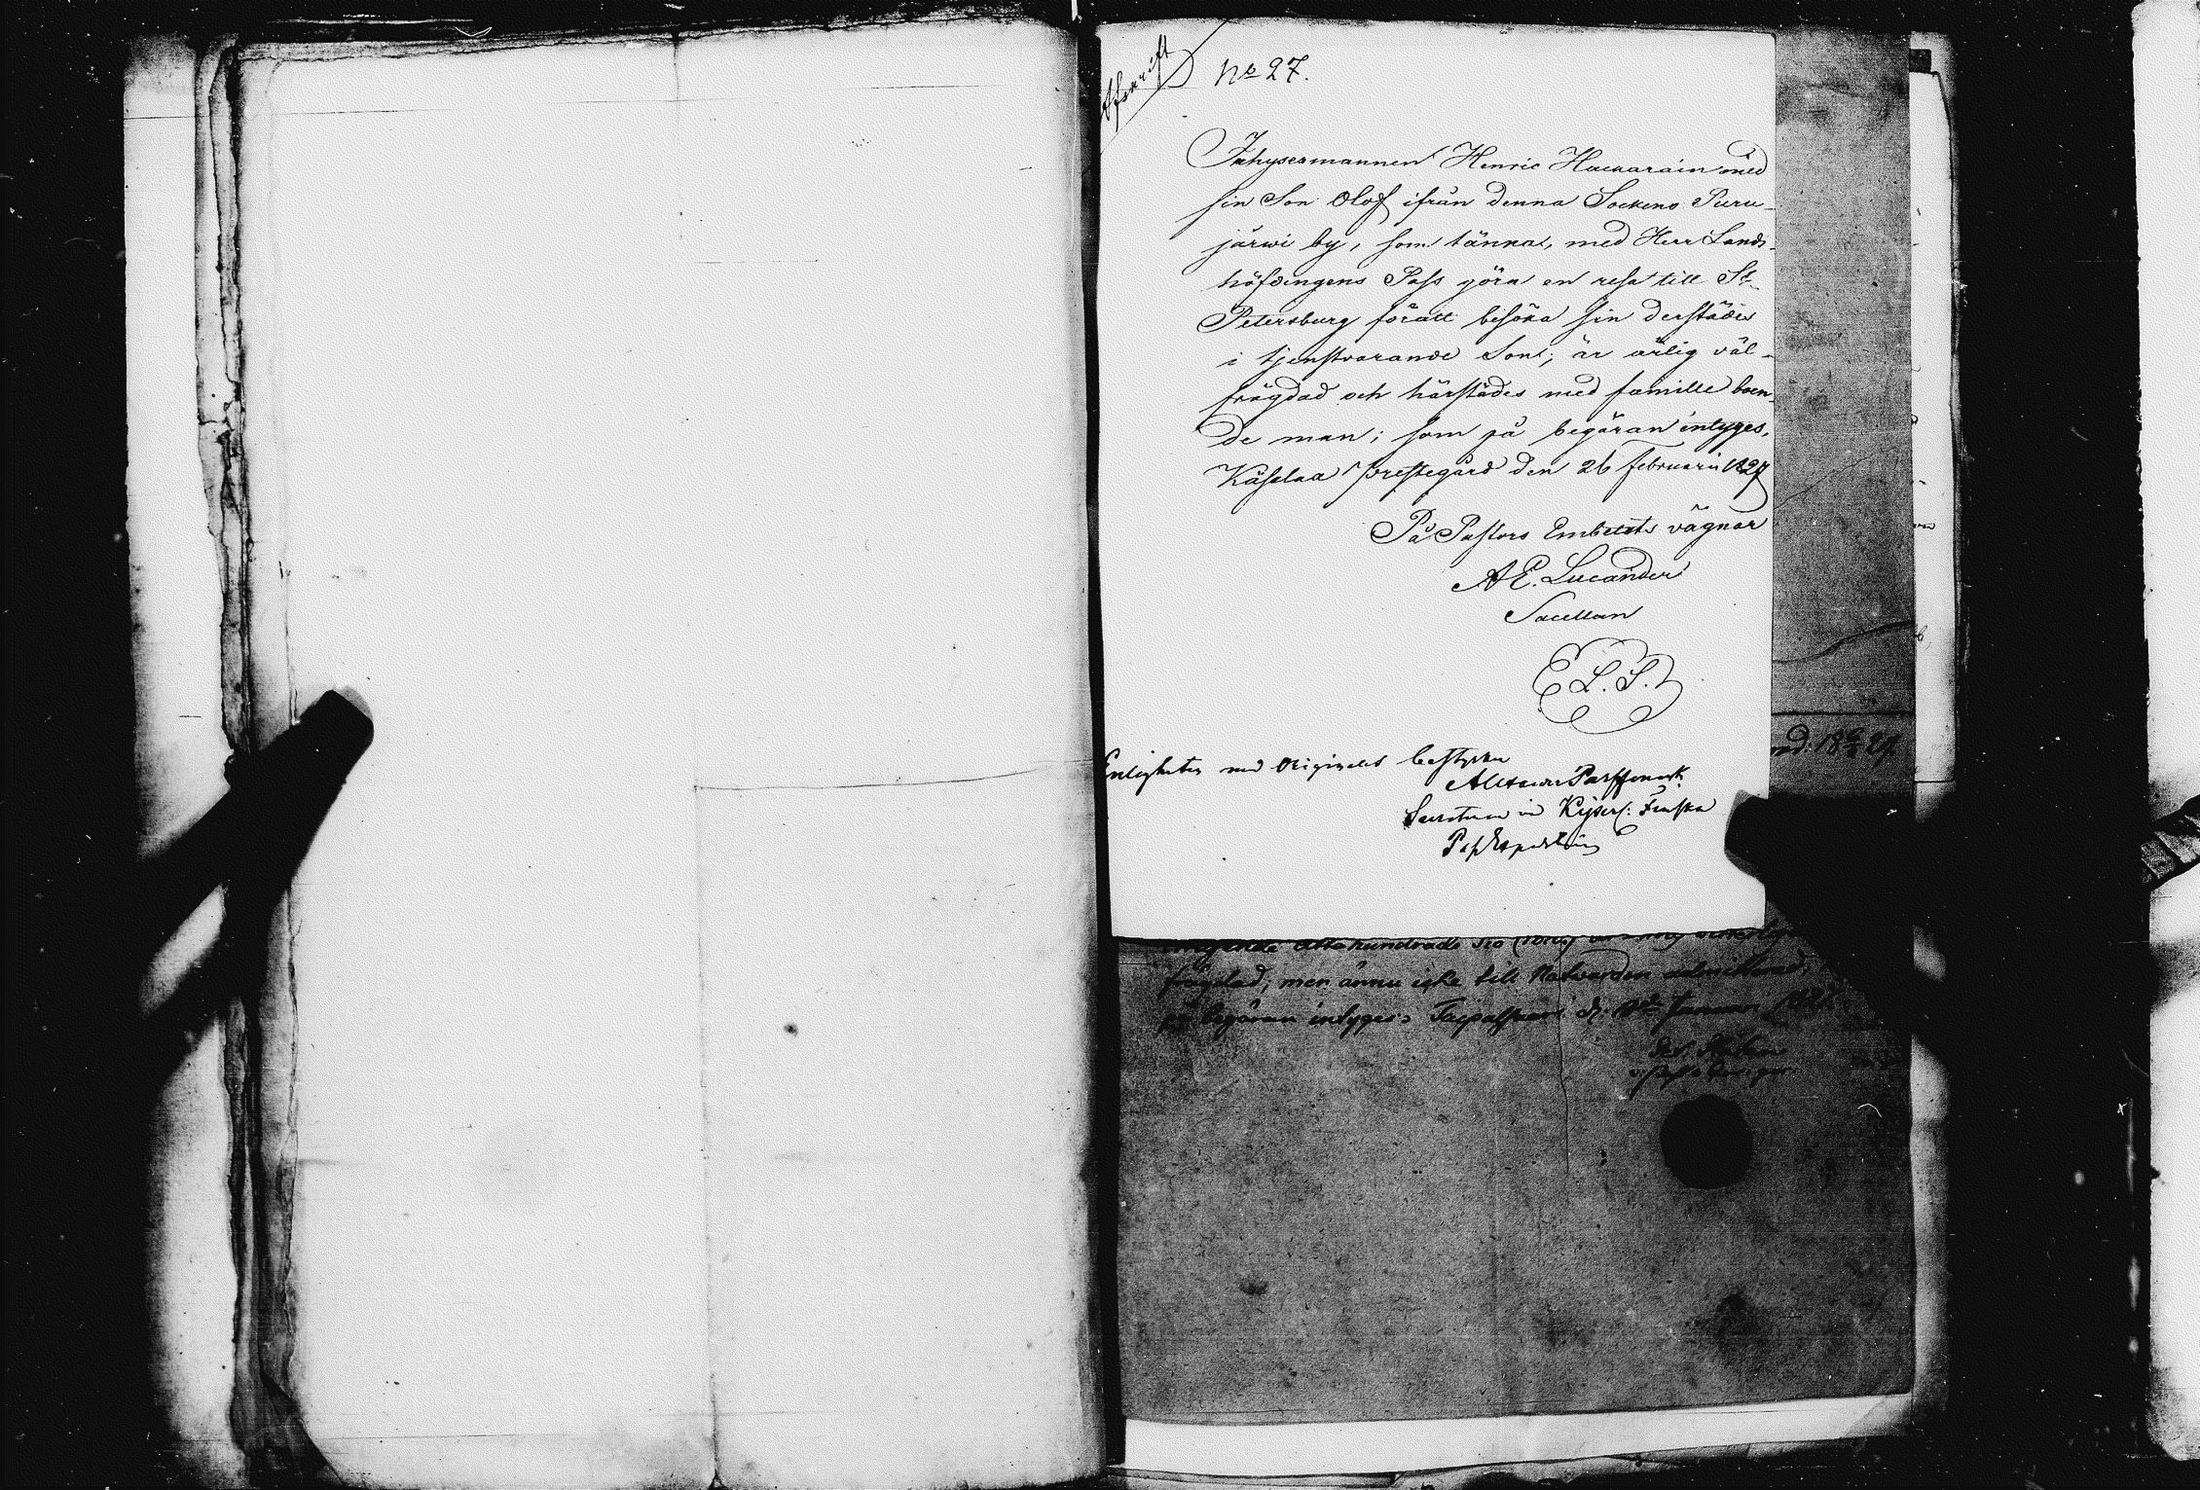 Afskrift
No 27.
Inhysesmannen Henric Huckarain med
sin Son Olof ifrån denna Sockens Puru-
järwi by, som tännas, med Herr Lands-
höfdingens Pass göra en resa till St
Petersburg föratt besöka sin derstädes
i tjenstvarande Son; är ärlig väl-
frägdad och härstädes med famille boen-
de man; som på begäran intyges,
Käfalaa Prestegård den 26 Februarii 1827
På Pastors Embetets vägnar
A E. Lucander
Sacellan
L. S.
Enligheten med Originalet bestyrker
Alexander
Secreterare vid Kejserl: Finska
Pass Expedition
nd: 18 27
attahundrade tio
frägdad; men ännu icke till Nattvarden admitterad,
på begäran intyges. Taipalsaari d. Januari